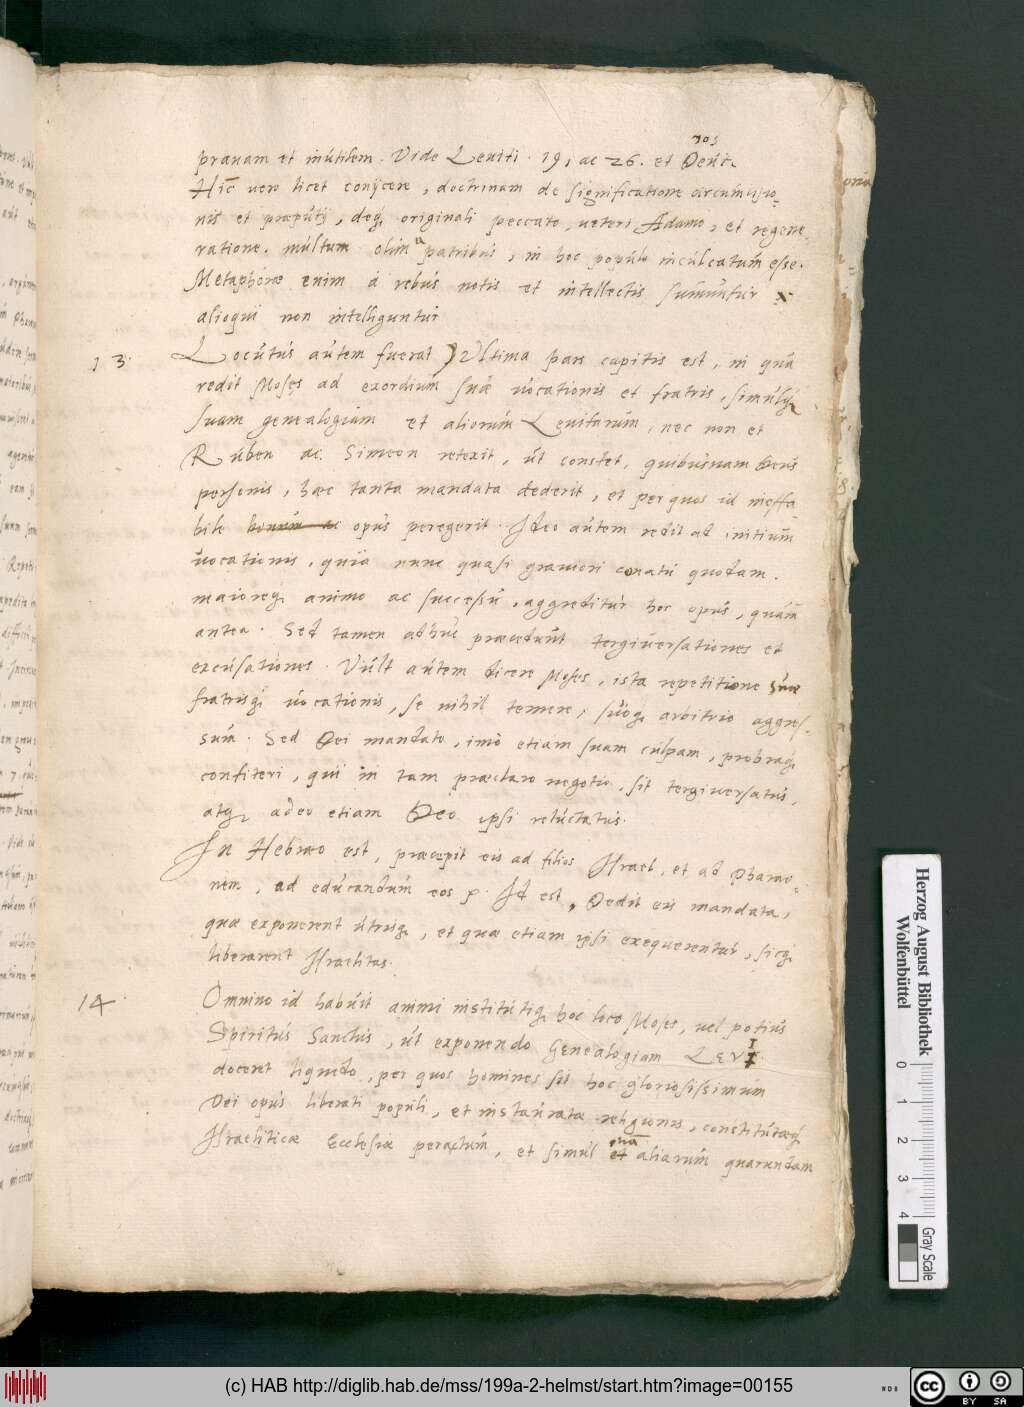 prauam et inutilem. Vide Leuiti. 19, ac 26. et Deut.
Hic uero licet conijcere, doctrinam de significatione circumcisio-
nis et praeputij, deq; originali peccato, ueteri Adamo, et regene-
ratione. multum olim a patribus, in hoc populo inculcatum esse.
Metaphorae enim à rebus notis et intellectis sumuntur
alioqui non intelliguntur
13. Locutus autem fuerat) Vltima pars capitis est, in qua
redit Moses ad exordium suae uocationis et fratris, simulq;
suam genealogiam et aliorum Leuitarum, nec non et
Ruben ac Simeon retexit, ut constet, quibusnam Deus
personis, haec tanta mandata dederit, et per quos id ineffa-
bile opus peregerit. Ideo autem redit ad initium
uocationis, quia nunc quasi grauiori conatu quodam.
maioreq; animo ac successu, aggreditur hoc opus, quàm
antea. Sed tamen adhuc praecedunt tergiuersationes et
excusationes. Vult autem dicere Moses, ista repetitione suae
fratrisq; uocationis, se nihil temere, suoq; arbitrio aggres-
sum. Sed Dei mandato, imò etiam suam culpam, probraq;
confiteri, qui in tam praeclaro negotio, sit tergiuersatus,
atq; adeo etiam Deo ipsi reluctatus.
In Hebraeo est, praecepit eis ad filios Israel, et ad Pharao-
nem, ad educandum eos . Id est, Dedit eis mandata,
quae exponerent utrisq;, et quae etiam ipsi exequerentur, sicq;
liberarent Israelitas.
14. Omnino id habuit animi institutiq; hoc loco Moses, uel potius
Spiritus Sanctus, ut exponendo Genealogiam LEVI
doceret per quos homines sit hoc gloriosissimum
Dei opus liberati populi, et instauratae religionis, constitutaeq;
Israeliticae Ecclesiae peractum, et simul aliarum quarundam
Herzog August Bibliothek
Wolfenbüttel
0 1 2 3 4
Gray Scale
(c) HAB http://diglib.hab.de/mss/199a-2-helmst/start.htm?image=00155
cc BY SA